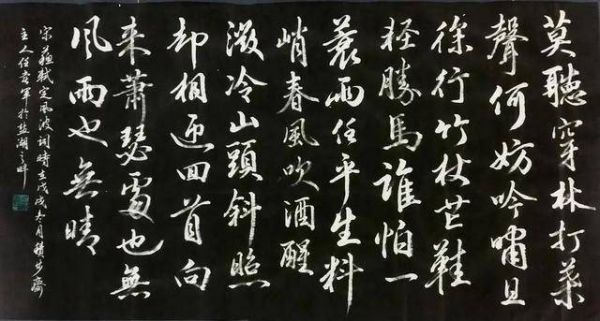 莫聽穿林打葉
聲何妨吟嘯且
徐行竹杖芒鞋
輕勝馬誰怕一
蓑雨任平生料
峭春風吹酒醒
微冷山頭斜照
却相迎回首向
来蕭瑟處也無
風雨也無晴
宋蘇軾定風波詞時在戊戌冬月齋
主人任軍於盐湖之畔